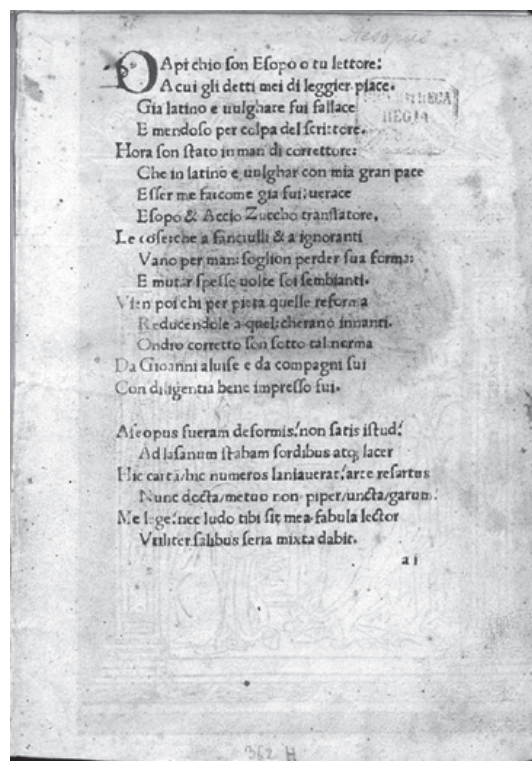 Aesopus
Api chio son Esopo o tu lettore:
A cui gli detti mei di leggier piace.
Gia latino e uulghare fui fallace
E mendoso per colpa del scrittore.
Hora son stato in man di correttore:
Che in latino e uulghar con mia gran pace
Esser me fa come gia fui uerace
Esopo & Accio Zuccho translatore.
Le cose che a fanciulli & a ignoranti
Vano per man: soglion perder sua forma:
E mutar spesse uolte soi sembianti.
Vien poi chi per pieta quelle reforma
Reducendole a quel: che rano innanti.
Ondio corretto son sotto tal norma
Da Gioanni aluise e da compagni sui
Con diligentia bene impresso fui.
Aesopus fueram deformis: non satis istud:
Ad lasanum stabam sordibus atq; lacer
Hic carta/hic numeros laniauerat: arte resartus
Nunc docta/metuo non piper/uncta/garum:
Me lege: nec ludo tibi sit mea fabula lector
Vtiliter salibus seria mixta dabit.
a i
REGIA
362 H